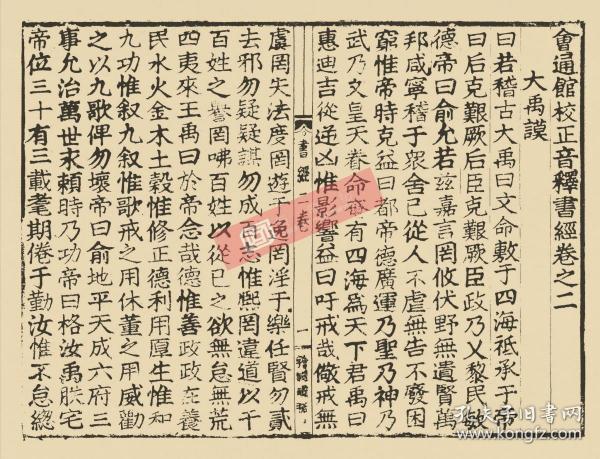 會通館校正音釋書經卷之二
大禹謨
曰若稽古大禹曰文命敷于四海祗承于帝
曰后克艱厥后臣克艱厥臣政乃乂黎民敏
德帝曰俞允若茲嘉言罔攸伏野無遺賢萬
邦咸寧稽于眾舍己從人不虐無告不廢困
窮惟帝時克益曰都帝德廣運乃聖乃神乃
武乃文皇天眷命奄有四海為天下君禹曰
惠迪吉從逆凶惟影響益曰吁戒哉儆戒無
書經二卷
一
虞罔失法度罔遊于逸罔淫于樂任賢勿貳
去邪勿疑疑謀勿成百志惟熙罔違道以干
百姓之譽罔咈百姓以從己之欲無怠無荒
四夷來王禹曰於帝念哉德惟善政政在養
民水火金木土穀惟修正德利用厚生惟和
九功惟叙九叙惟歌戒之用休董之用威勸
之以九歌俾勿壞帝曰俞地平天成六府三
事允治萬世永賴時乃功帝曰格汝禹朕宅
帝位三十有三載耄期倦于勤汝惟不怠總
孔夫子旧书网
www.kongfz.com